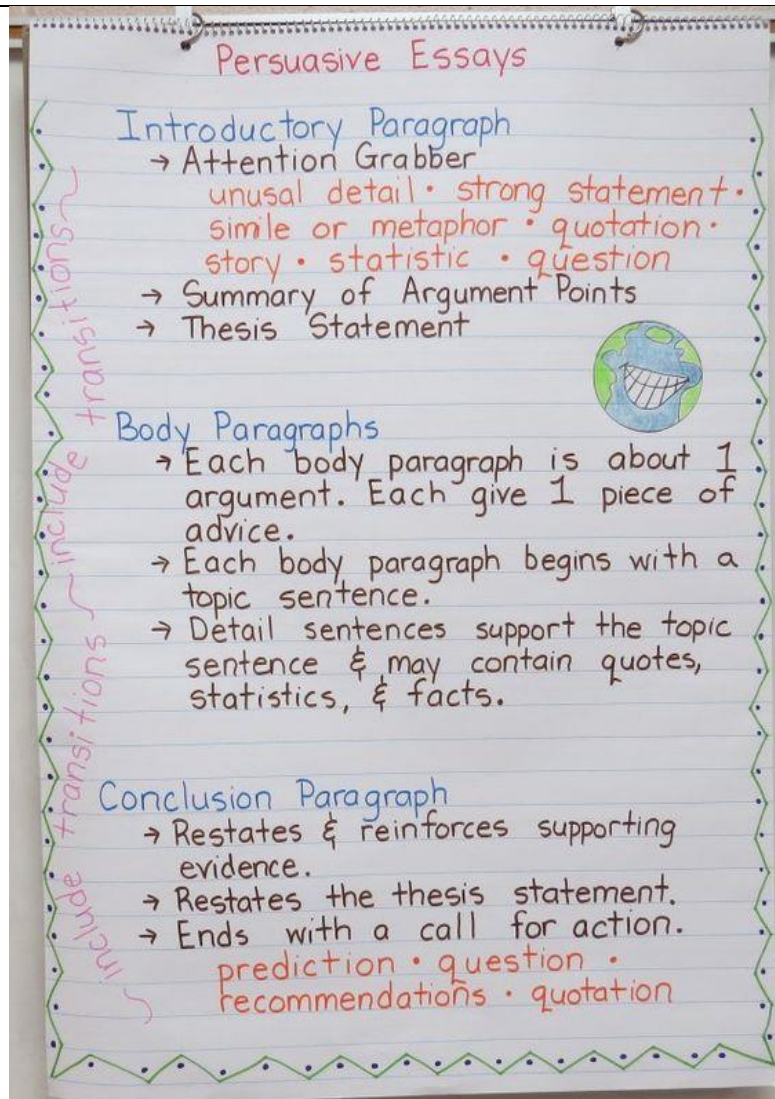 Persuasive Essays
Introductory Paragraph
→ Attention Grabber
unusal detail · strong statement ·
simile or metaphor · quotation ·
story · statistic · question
→ Summary of Argument Points
→ Thesis Statement
Body Paragraphs
→ Each body paragraph is about 1
argument. Each give 1 piece of
advice.
→ Each body paragraph begins with a
topic sentence.
→ Detail sentences support the topic
sentence & may contain quotes,
statistics, & facts.
Conclusion Paragraph
→ Restates & reinforces supporting
evidence.
→ Restates the thesis statement.
→ Ends with a call for action.
prediction · question ·
recommendations · quotation
~ include transitions ~ include transitions ~